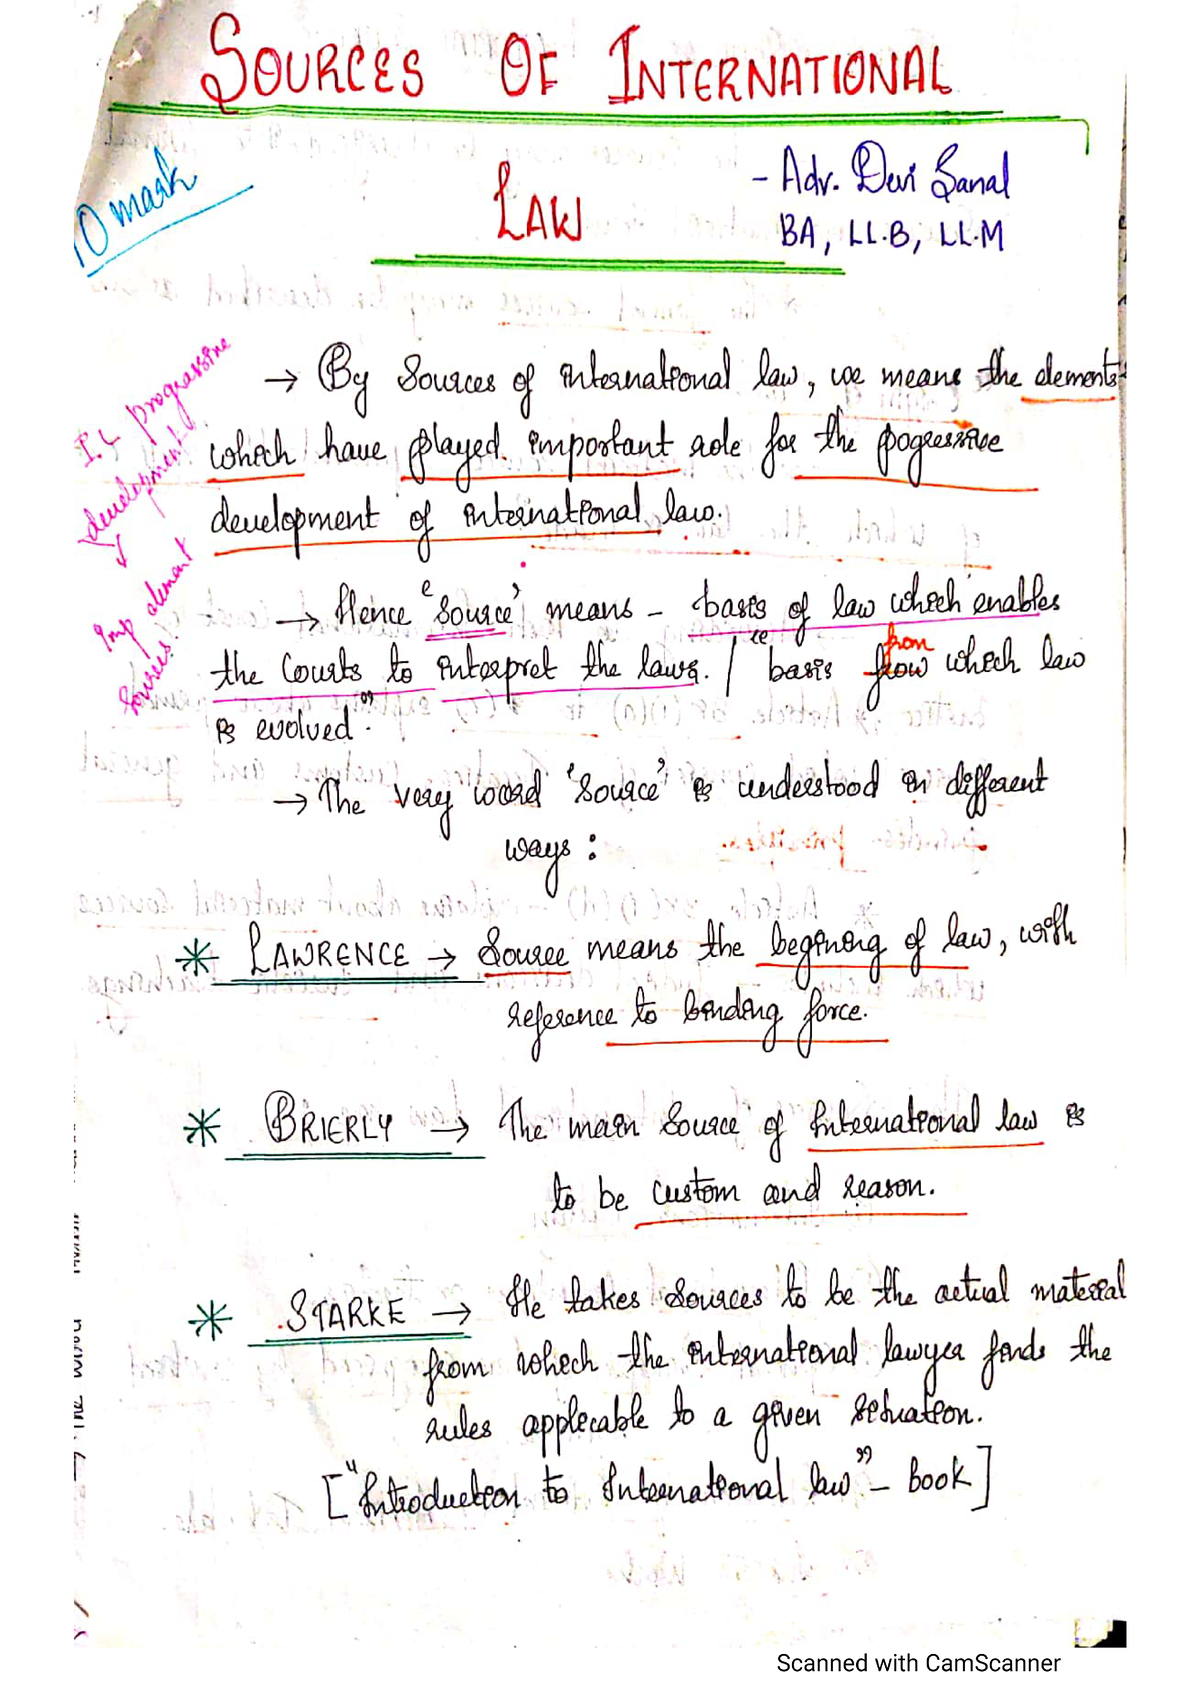 SOURCES OF INTERNATIONAL
LAW
- Adv. Devi Sanal
BA, LL.B, LL.M
10 mark
→ By Sources of international law, we means the elements
which have played important role for the progressive
development of international law.
I.L progressive
development
↓
Imp element
Sources.
→ Hence 'source' means - basis of law which enables
the Courts to interpret the laws. / "basis from which law
is evolved".
→ The very word 'Source' is understood in different
ways :
* LAWRENCE → Source means the begining of law, with
reference to binding force.
* BRIERLY → The main source of International law is
to be custom and reason.
* STARKE → He takes sources to be the actual material
from which the international lawyer finds the
rules applicable to a given situation.
["Introduction to International law" - book]
Scanned with CamScanner